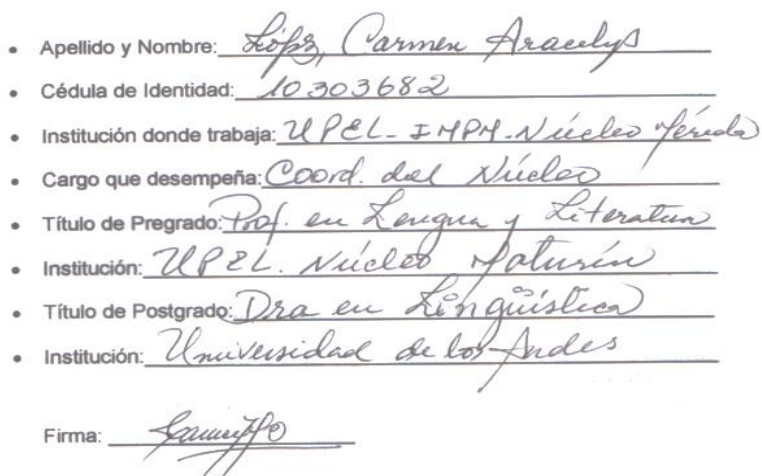 • Apellido y Nombre: López, Carmen Aracelys
• Cédula de Identidad: 10303682
• Institución donde trabaja: UPEL-IMPM-Núcleo Mérida
• Cargo que desempeña: Coord. del Núcleo
• Título de Pregrado: Prof. en Lengua y Literatura
• Institución: UPEL. Núcleo Maturín
• Título de Postgrado: Dra en Lingüística
• Institución: Universidad de los Andes
Firma: